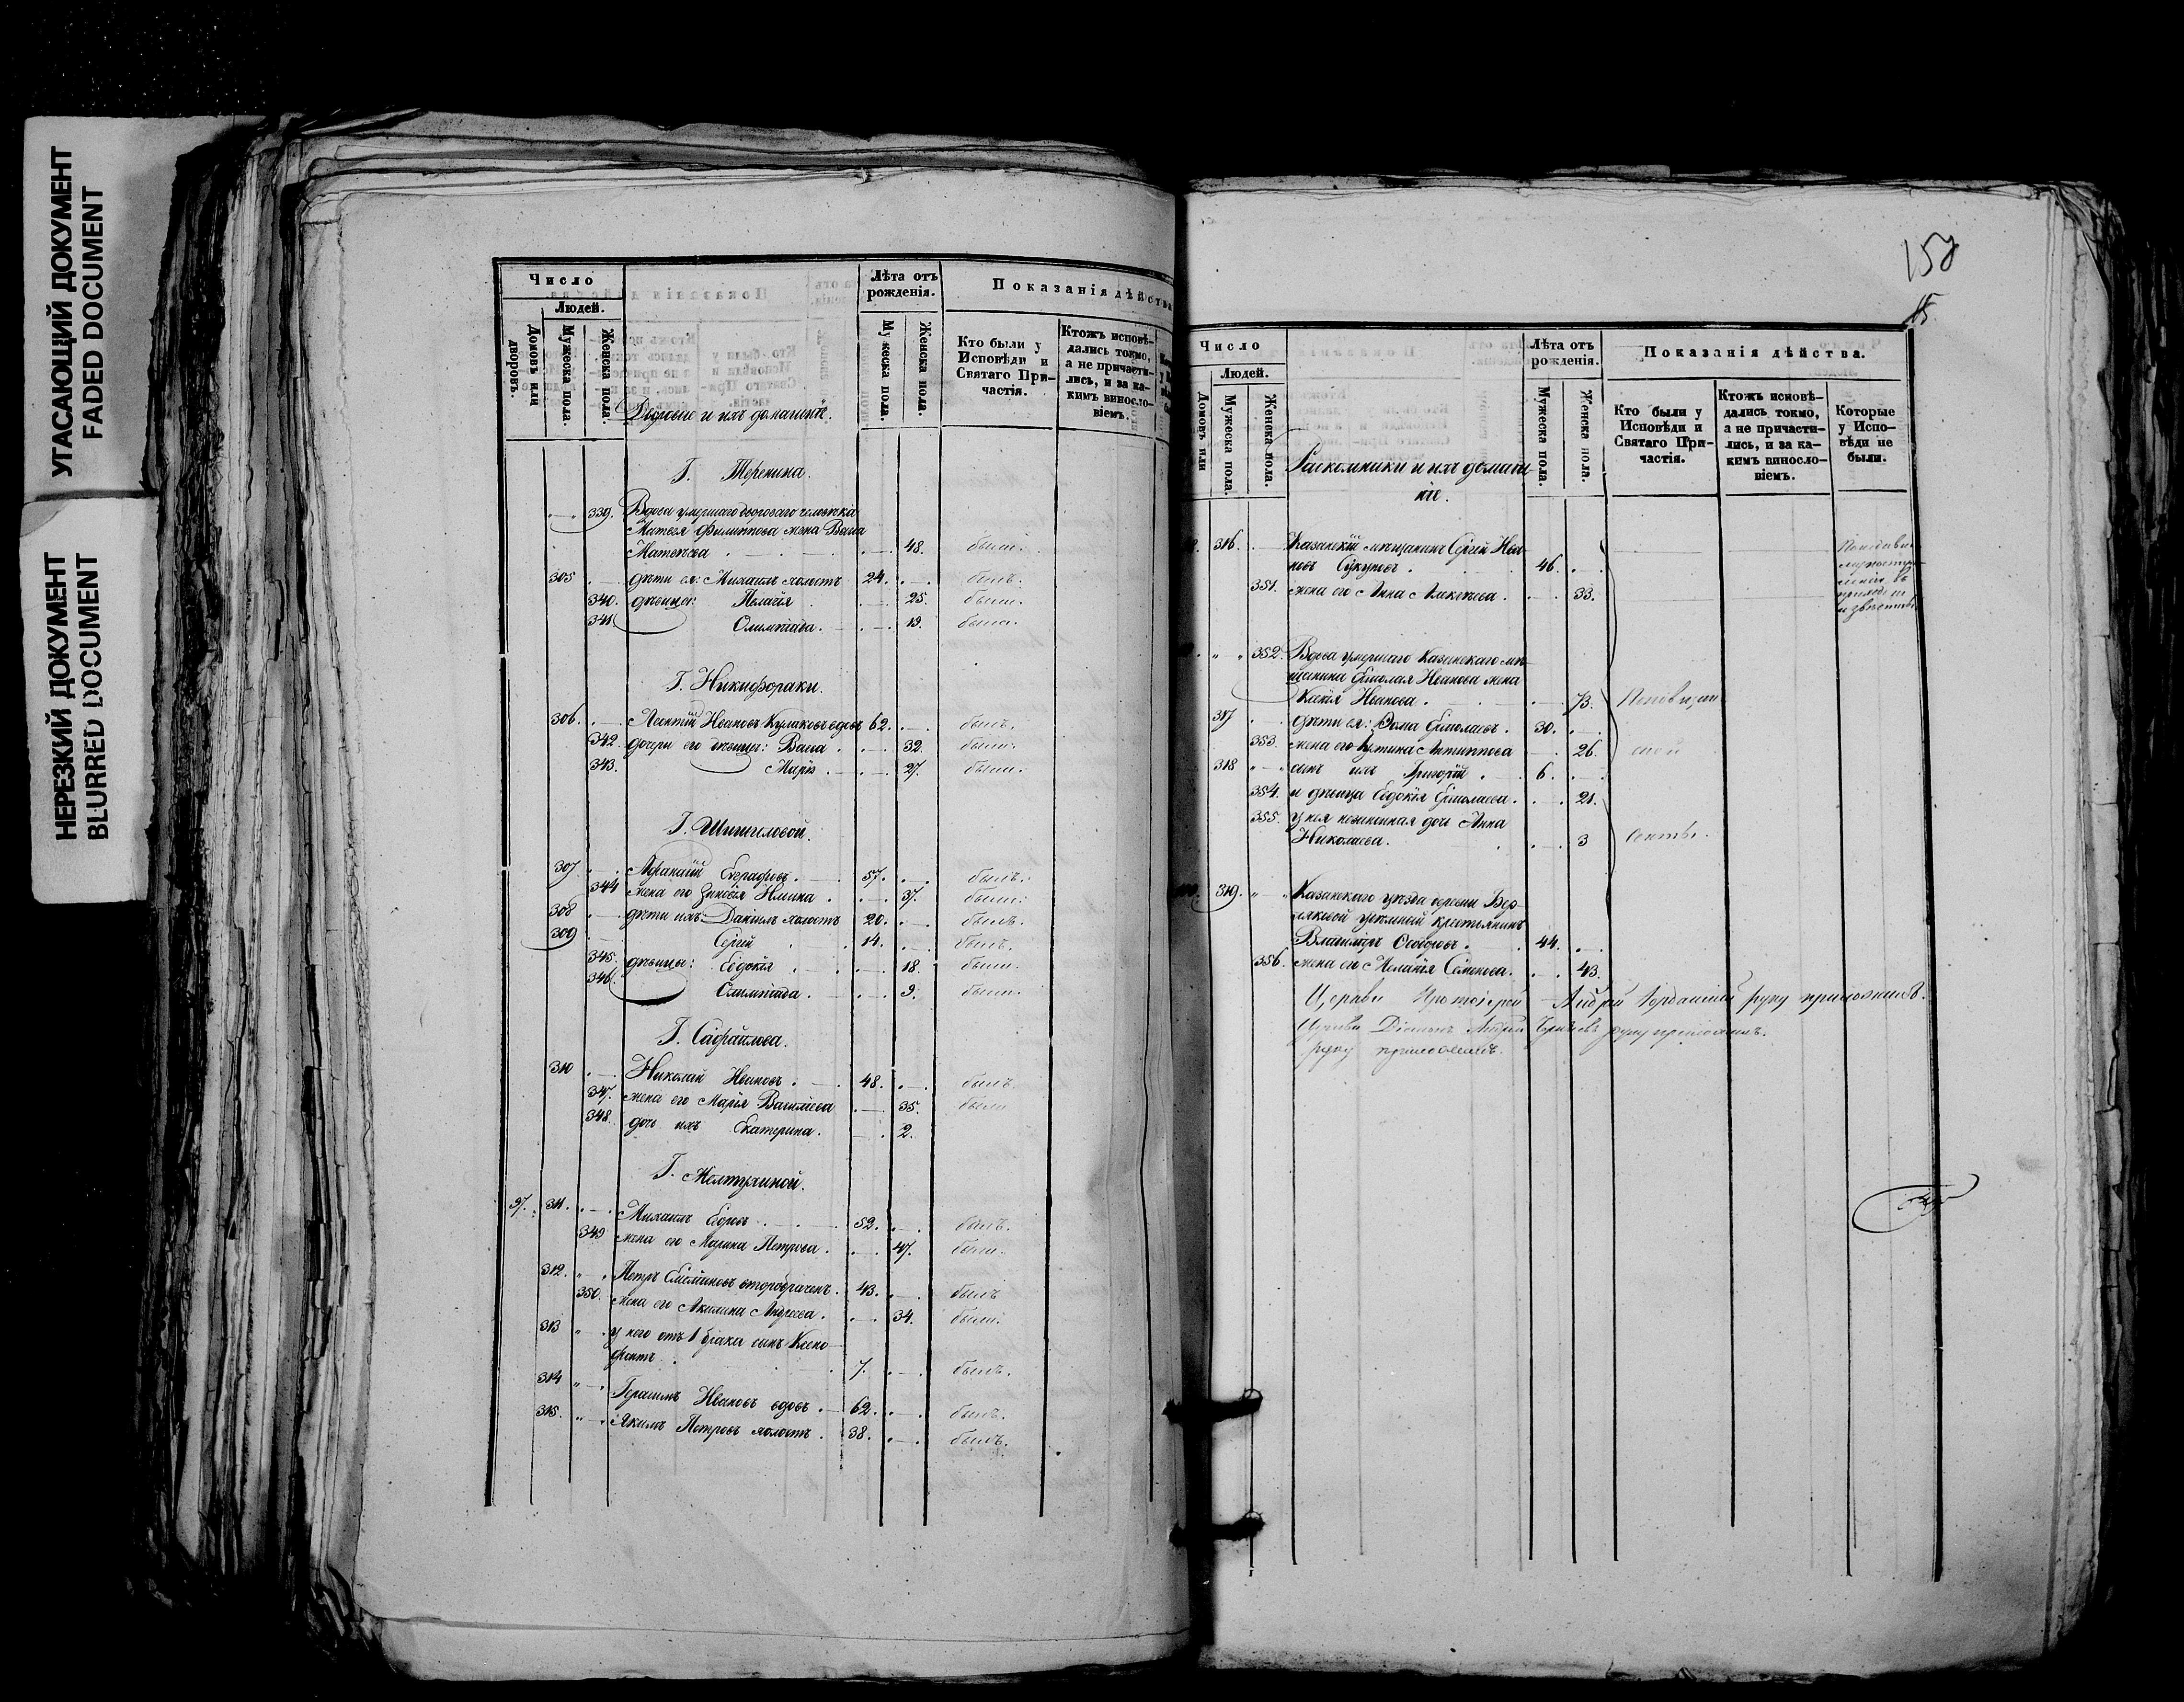 УГАСАЮЩИЙ ДОКУМЕНТ
FADED DOCUMENT
НЕРЕЗКИЙ ДОКУМЕНТ
BLURRED DOCUMENT
Число
Людей.
Домовъ или дворовъ.
Мужеска пола.
Женска пола.
Дворовые и ихъ домашніе.
Лѣта отъ рожденія.
Мужеска пола.
Женска пола.
Показанія дѣйства
Кто были у Исповѣди и Святаго Причастія.
Ктожъ исповѣдались токмо, а не причастились, и за какимъ винословіемъ.
Г. Теренина.
339. Вдова умершаго двороваго человѣка
Матвея Филиппова жена Васса
Матвѣева 48. была.
305 дѣти ея: Михаилъ холостъ 24. былъ.
340. дѣвицы: Пелагія 25. была.
341 Олимпіада. 19. была.
Г. Никифораки.
306. Леонтій Ивановъ Кулаковъ вдовъ 62. былъ.
342. дочери его дѣвицы: Васса 32. была.
343. Марія 27. была.
Г. Шишеловой.
307 Афанасій Евграфовъ. 57. былъ.
344 жена его Зиновія Ильина 37. была.
308 дѣти ихъ: Даніилъ холостъ 20. былъ.
309 Сергій 14. былъ.
345. дѣвицы: Евдокія 18. была.
346. Олимпіада. 9. была.
Г. Сафайлова.
310 Николай Ивановъ. 48. былъ.
347. жена его Марія Васильева 35. была
348. дочь ихъ Екатерина. 2.
Г. Желтухиной.
97. 311. Михаилъ 52. былъ.
349 жена его Марина Петрова. 47. была.
312. Петръ второбраченъ. 43. былъ
350. жена его Акилина Андреева. 34. была.
313 у него отъ 1 брака сынъ Ксено-
фонтъ 7. былъ.
314 Герасимъ Ивановъ вдовъ. 62. былъ.
315. Якимъ Петровъ холостъ. 38. былъ.
15
Число
Людей.
Домовъ или
Мужеска пола.
Женска пола.
Раскольники и ихъ домаш-
ніе.
Лѣта отъ рожденія.
Мужеска пола.
Женска пола.
Показанія дѣйства.
Кто были у Исповѣди и Святаго Причастія.
Ктожъ исповѣдались токмо, а не причастились, и за какимъ винословіемъ.
Которые у Исповѣди не были.
316. Казанскій мѣщанинъ Сергій Ива-
новъ 46.
351. жена его Анна Алексѣева. 33.
352. Вдова умершаго Казанскаго мѣ-
щанина Ермолая Иванова жена
Ксенія Иванова. 73.
317 дѣти ея: Ѳома Ермолаевъ. 30.
353. жена его Устина Антиппова 26.
318 сынъ ихъ Григорій 6.
354. и дѣвица Евдокія Ермолаева. 21.
355. у нея незаконная дочь Анна
Николаева. 3
319. Казанскаго уѣзда деревни
удѣльный крестьянинъ
Владиміръ 44.
356. жена его Меланія Семенова. 43.
Церкви Протоіерей Андрей руку приложилъ.
Церкви Діаконъ Андрей руку приложилъ.
руку приложилъ.